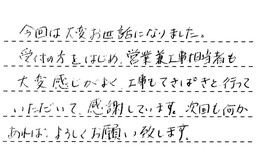 今回は大変お世話になりました。
受付の方をはじめ、営業兼工事担当者も
大変感じがよく、工事もてきぱきと行って
いただいて、感謝しています。次回も何か
あれば、よろしくお願い致します。